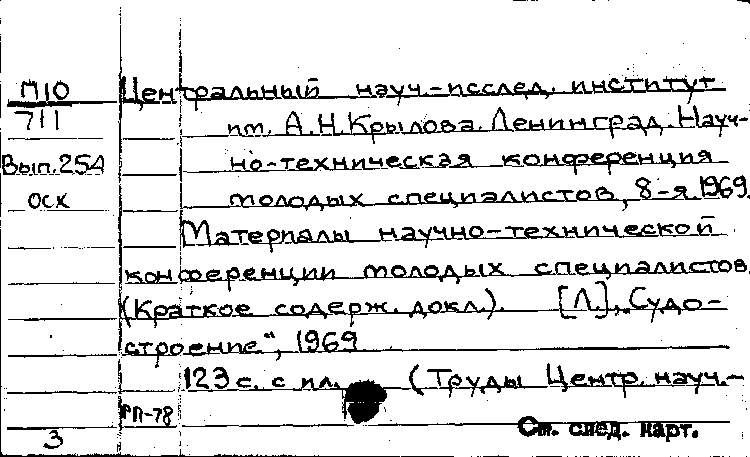 П10 Центральный науч.-исслед. институт
711 им. А.Н.Крылова. Ленинград. Науч-
Вып.254 но-техническая конференция
оск молодых специалистов, 8-я. 1969.
Материалы научно-технической
конференции молодых специалистов
(Краткое содерж. докл.). [Л.], „Судо-
строение", 1969
123 с. с ил. (Труды Центр. науч.-
РП-78
3 См. след. карт.